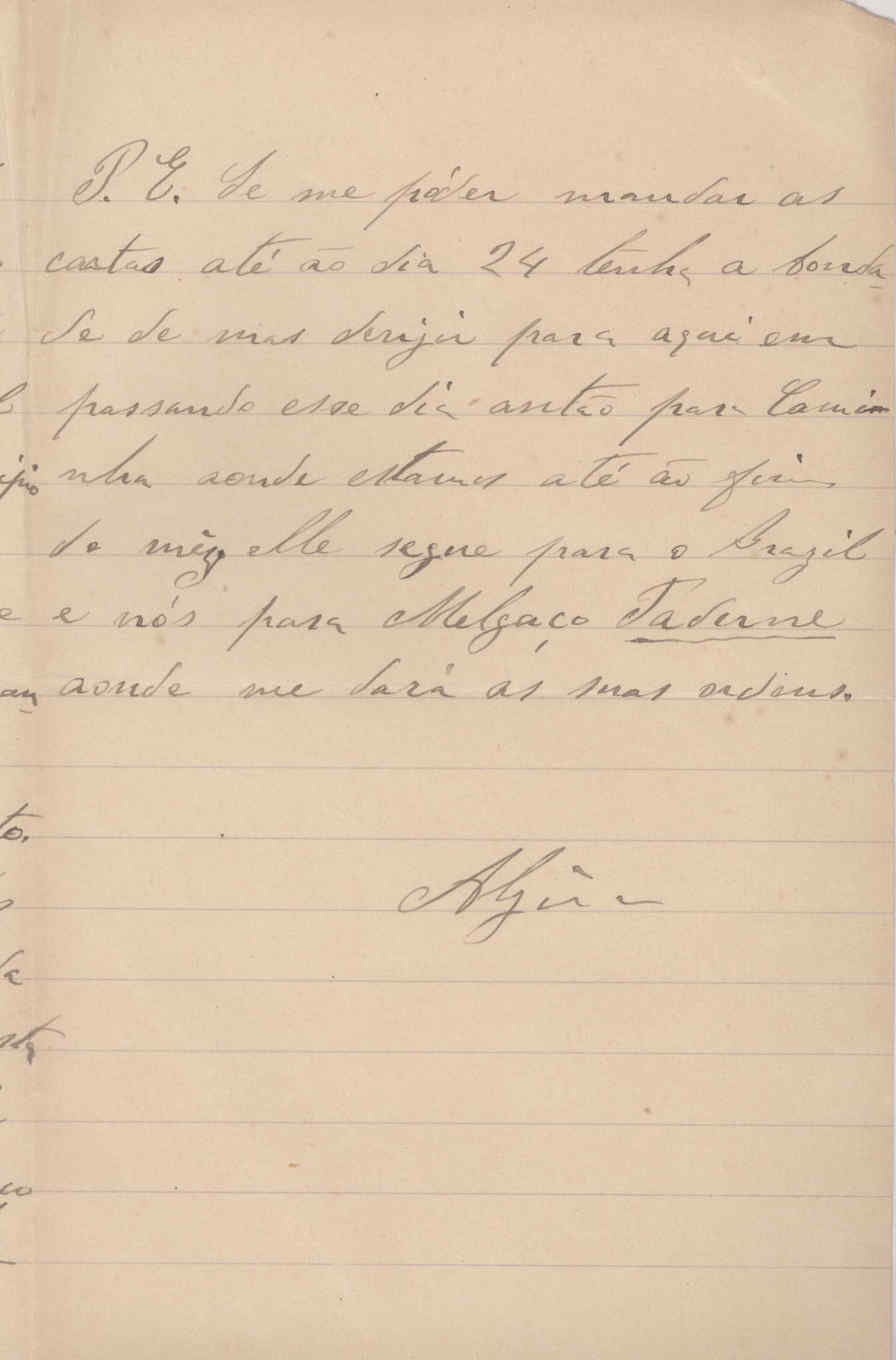 P. E. Se me póder mandar as
cartas até ão dia 24 tenha a bonda-
de de mas derijir para aqui em
passando esse dia antão para Cami-
nha aonde estamos até ão fim
do mêz, elle segue para o Brazil
e nós para Melgaço Paderne
aonde me dará ás suas ordens.
Alzira